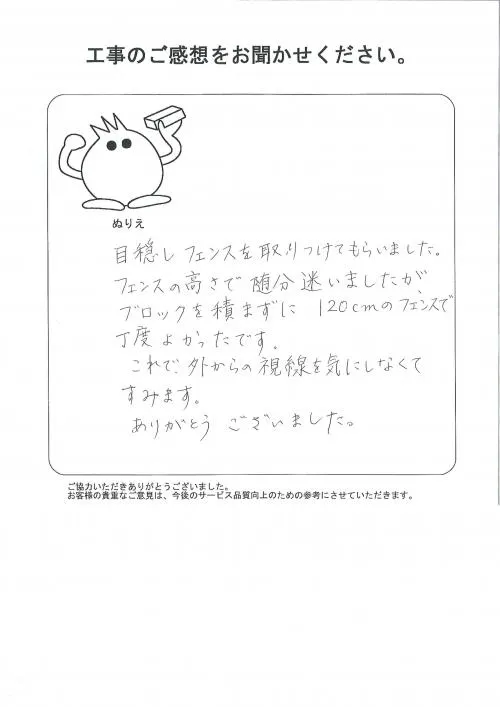 工事のご感想をお聞かせください。
ぬりえ
目穏し フェンスを取りつけてもらいました。
フェンスの高さで 随分 迷いましたが、
ブロックを積まずに 120cmのフェンスで
丁度よかったです。
これで、外からの視線を気にしなくて
すみます。
ありがとう ございました。
ご協力いただきありがとうございました。
お客様の貴重なご意見は、今後のサービス品質向上のための参考にさせていただきます。